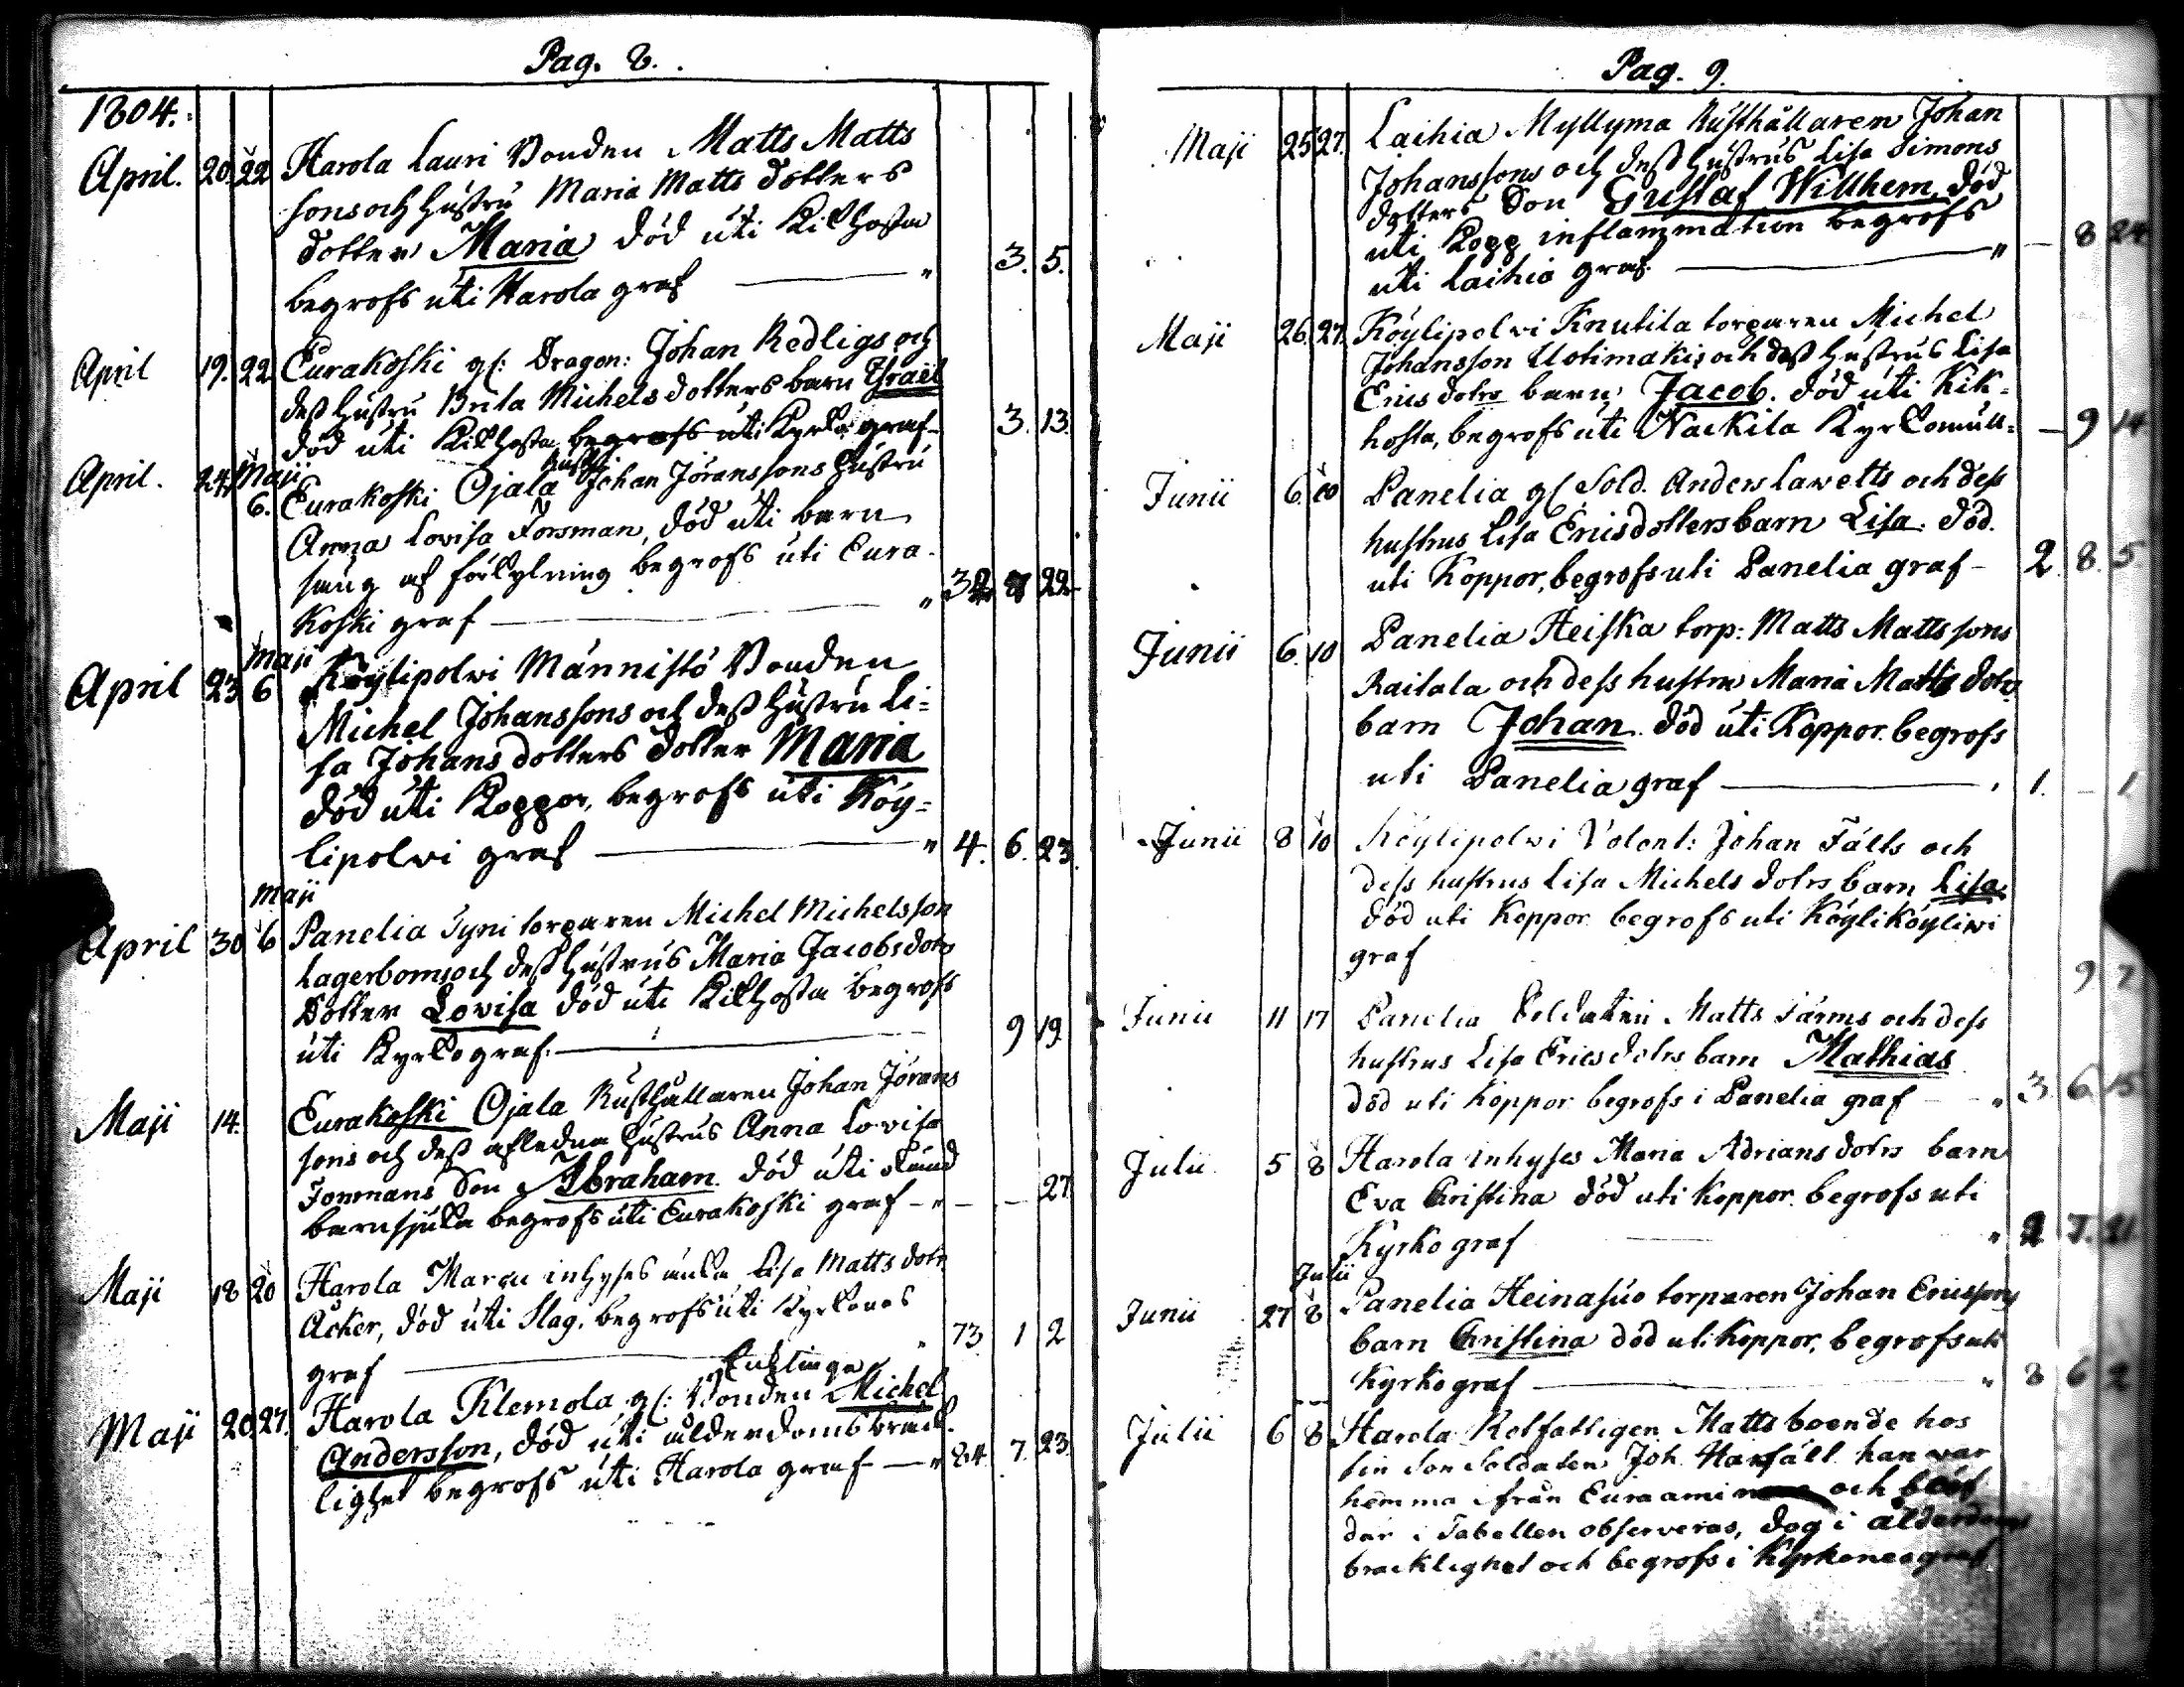 Pag. 8.
1804.
April. 20. 22 Harola Lauri Bonden Matts Matts
sons och hustru Maria Matts dotters
dotter Maria död uti Kikhosta
begrofs uti Harola graf — " 3. 5.
April 19. 22 Eurakoski gl: Dragon: Johan Redligs och
dess hustru Brita Michels dotters barn Israel
död uti Kikhosta begrofs uti Kyrko graf - 3. 13.
April. 24. Maji 6. Eurakoski Ojala Rusth: Johan Jöranssons hustru
Anna Lovisa Forsman, död uti barn
säng af förkylning begrofs uti Eura-
koski graf — " 32 8 22
April 23 Maji 6 Köylipolvi Männistö Bonden
Michel Johanssons och dess hustru Li=
sa Johans dotters dotter Maria
död uti Koppor, begrofs uti Köy=
lipolvi graf — " 4. 6. 23
April 30 Maji 6 Panelia Tyni torparen Michel Michelsson
Lagerboms och dess hustrus Maria Jacobs dotrs
Dotter Lovisa död uti Kikhosta begrofs
uti Kyrko graf. — 9 19
Maji 14. Eurakoski Ojala Rusthållaren Johan Jörans
sons och dess afledna hustrus Anna Lovisa
Forsmans Son Abraham. död uti okänd
barnsjuka begrofs uti Eurakoski graf - " - - 27
Maji 18 20 Harola Marcu inhyses änka Lisa Matts dotr
Åcker, död uti Slag, begrofs uti Kyrkones
graf — " 73 1 2
Maji 20 27. Harola Klemola gl: Bonden Enklingen Michel
Andersson, död uti ålderdoms bräck
lighet begrofs uti Harola graf — " 84. 7. 23.
Pag. 9.
Maji 25 27. Laihia Myllymä Rusthållaren Johan
Johanssons och dess hustrus Lisa Simons
dotters Son Gustaf Willhem, död
uti Kopp inflammation begrofs
uti Laihia graf. — " - 8 24
Maji 26. 27. Köylipolvi Knutila torparen Michel
Johansson Uotimäkis och dess hustrus Lisa
Erics dotrs barn Jacob. död uti Kik=
hosta, begrofs uti Nackila Kyrkomull= - 9 14
Junii 6. 10 Panelia gl Sold. Anders Lawetts och dess
hustrus Lisa Ericsdotters barn Lisa. död.
uti Koppor, begrofs uti Panelia graf - 2. 8. 5
Junii 6. 10 Panelia Heiska torp: Matts Mattssons
Raitala och dess hustru Maria Matts dotrs
barn Johan. död uti Koppor. begrofs
uti Panelia graf — " 1. - 1
Junii 8 10 Köylipolvi Volont: Johan Fälts och
dess hustrus Lisa Michels dotrs barn Lisa
död uti Koppor begrofs uti Köyliköylivi
graf 9 7
Junii 11 17 Panelia Soldaten Matts Järms och dess
hustrus Lisa Erics dotrs barn Mathias
död uti Koppor begrofs i Panelia graf - " 3. 6. 15
Julii 5 8 Harola inhyses Maria Adrians dotrs barn
Eva Christina död uti Koppor. begrofs uti
Kyrko graf " 2 7. 21
Junii 27 Julii 8 Panelia Heinasuo torparen Johan Ericssons
barn Christina död uti Koppor, begrofs uti
Kyrko graf — " 8 6 2
Julii 6 8 Harola Rotfattigen Matts boende hos
sin Son Soldaten Joh. Harfält han war
hemma ifrån Euraaminne och bör
der i Tabellen observeras, dog i ålderdoms
bräcklighet och begrofs i Kyrkones graf